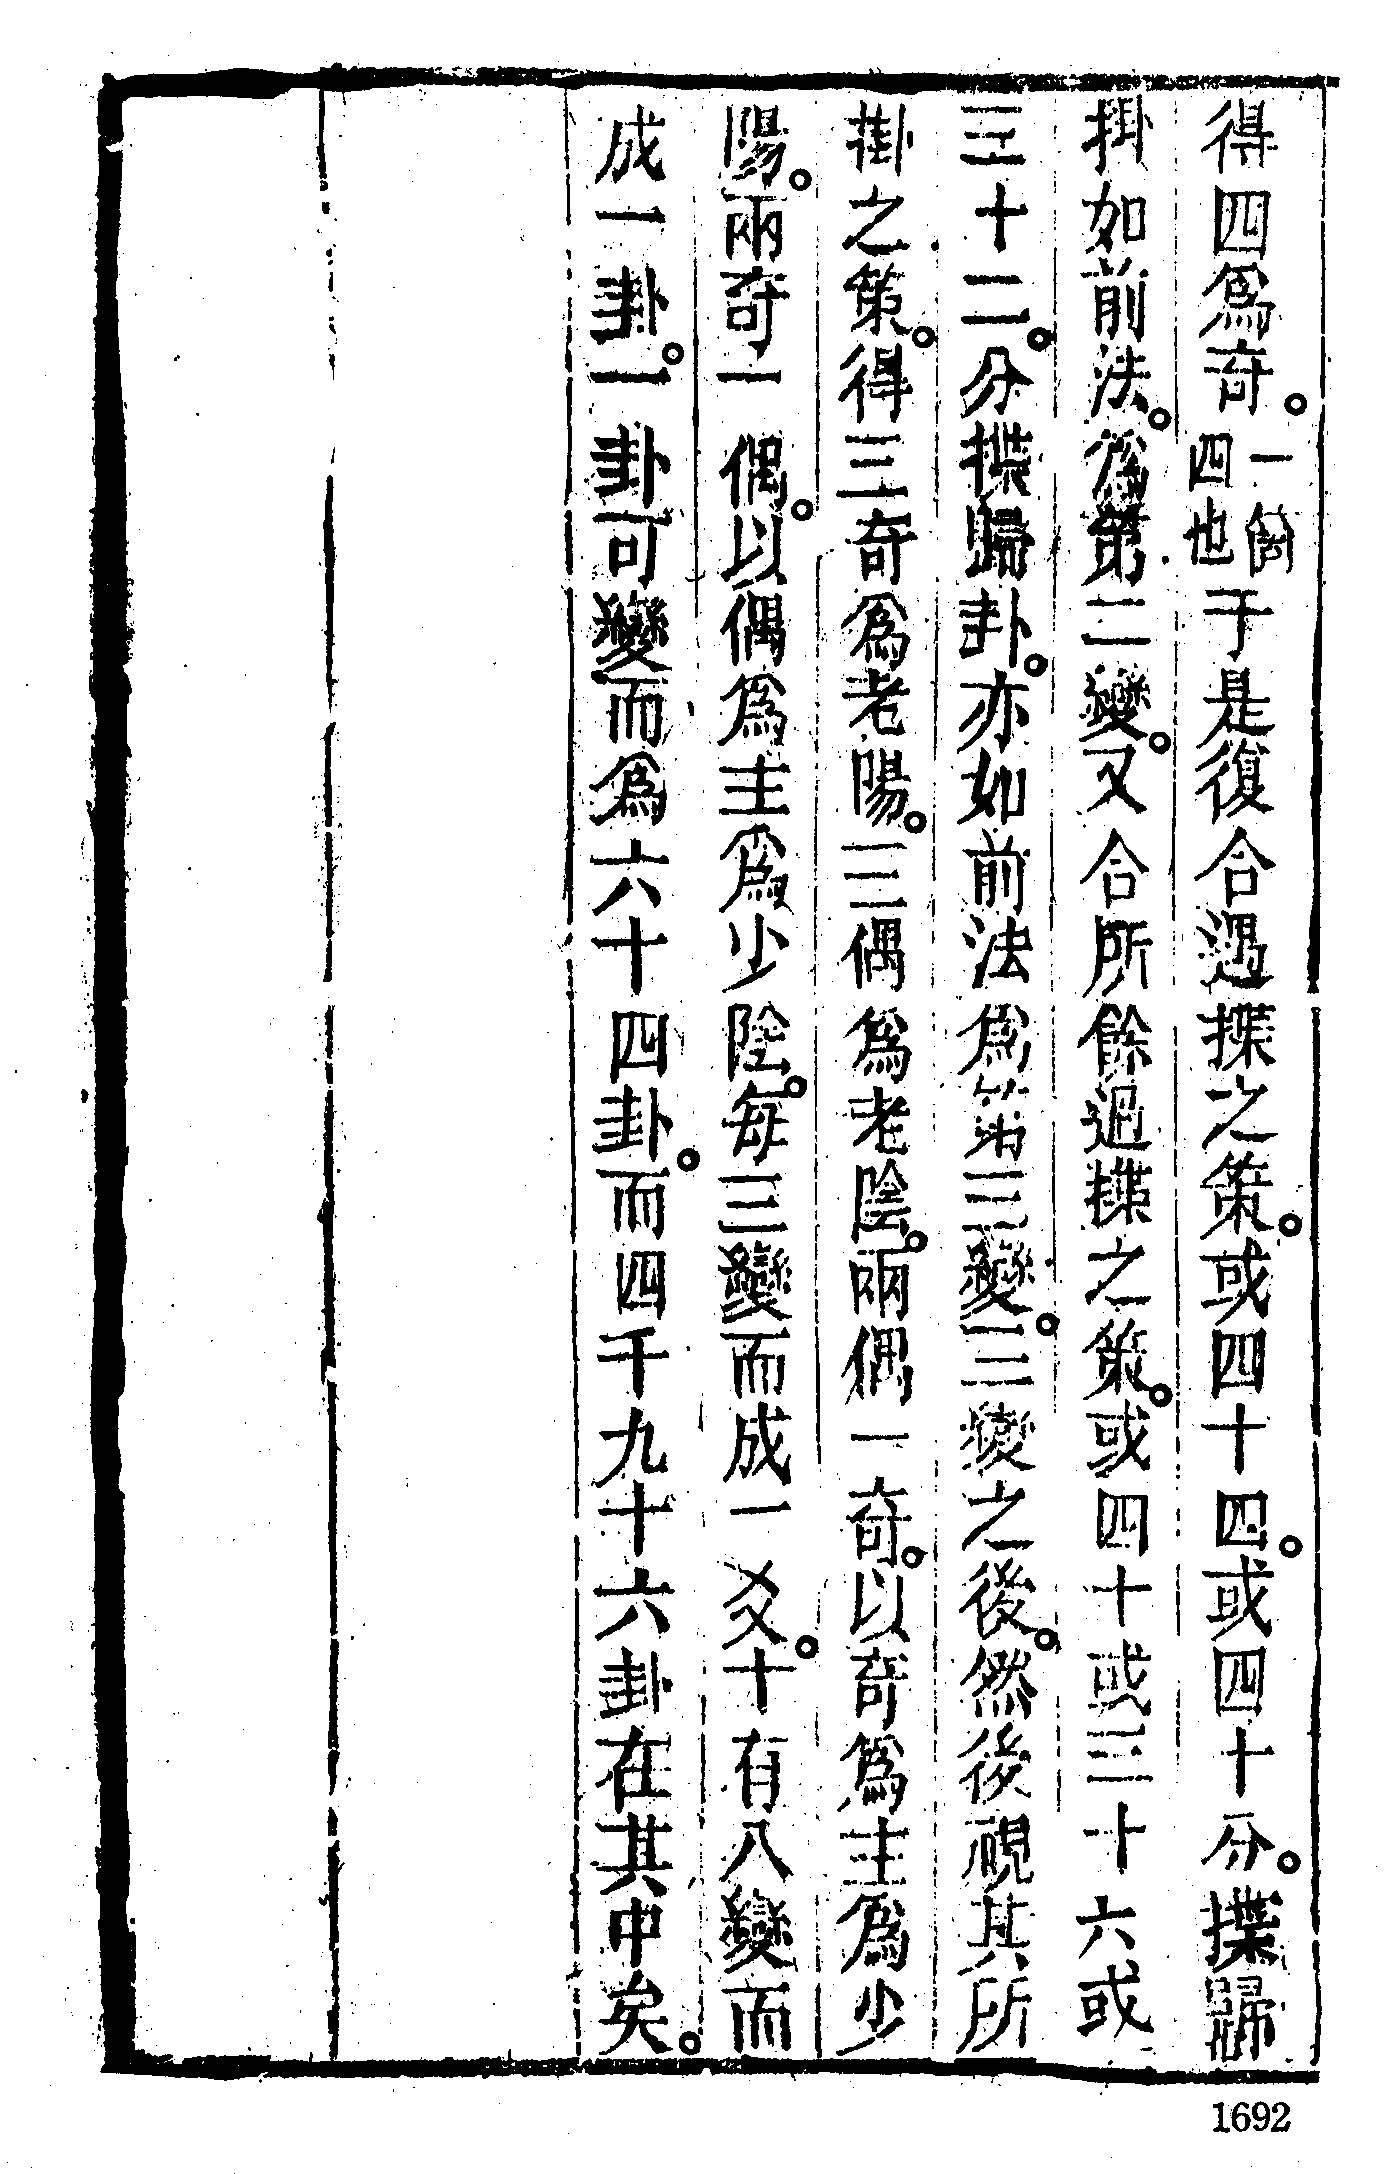 得四爲奇。一箇四也于是復合過揲之策。或四十四。或四十分。揲歸
掛如前法。爲第二變。又合所餘過揲之策。或四十或三十六或
三十二。分揲歸卦。亦如前法爲第三變。三變之後。然後視其所
掛之策。得三奇爲老陽。三偶爲老陰。兩偶一奇。以奇爲主爲少
陽。兩奇一偶。以偶爲主爲少陰。每三變而成一爻。十有八變而
成一卦。一卦可變而爲六十四卦。而四千九十六卦在其中矣。
1692